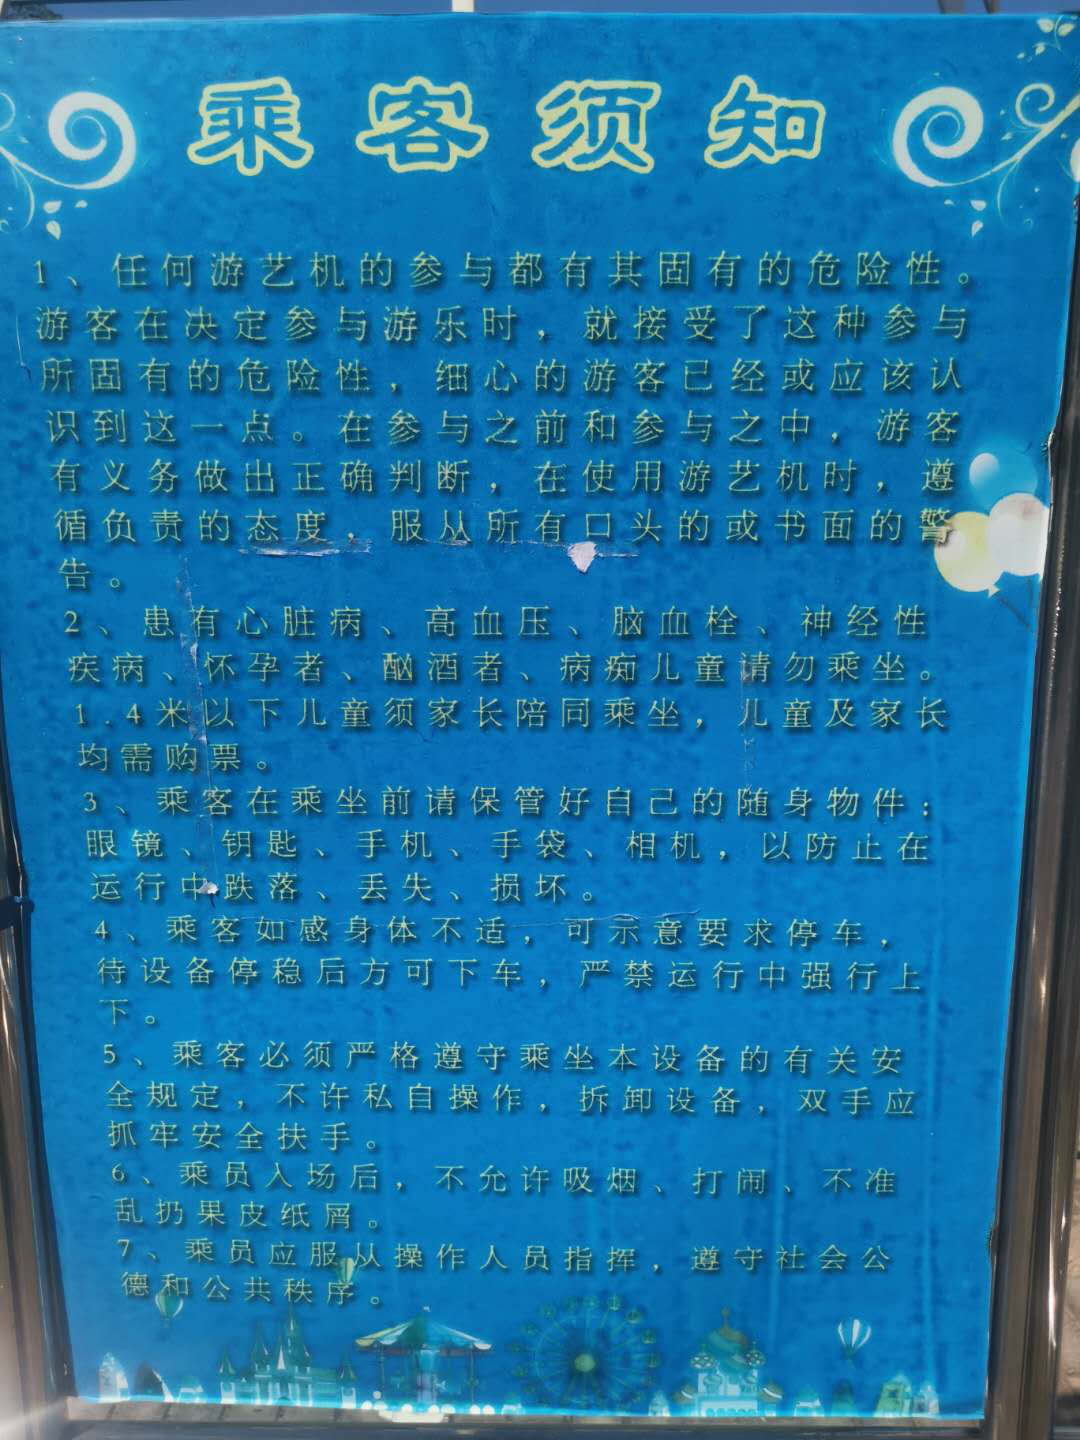 乘客须知
1、任何游艺机的参与都有其固有的危险性。
游客在决定参与游乐时，就接受了这种参与
所固有的危险性，细心的游客已经或应该认
识到这一点。在参与之前和参与之中，游客
有义务做出正确判断，在使用游艺机时，遵
循负责的态度，服从所有口头的或书面的警
告。
2、患有心脏病、高血压、脑血栓、神经性
疾病、怀孕者、酗酒者、病痴儿童请勿乘坐。
1.4米以下儿童须家长陪同乘坐，儿童及家长
均需购票。
3、乘客在乘坐前请保管好自己的随身物件；
眼镜、钥匙、手机、手袋、相机，以防止在
运行中跌落、丢失、损坏。
4、乘客如感身体不适，可示意要求停车，
待设备停稳后方可下车，严禁运行中强行上
下。
5、乘客必须严格遵守乘坐本设备的有关安
全规定，不许私自操作，拆卸设备，双手应
抓牢安全扶手。
6、乘员入场后，不允许吸烟、打闹、不准
乱扔果皮纸屑。
7、乘员应服从操作人员指挥，遵守社会公
德和公共秩序。